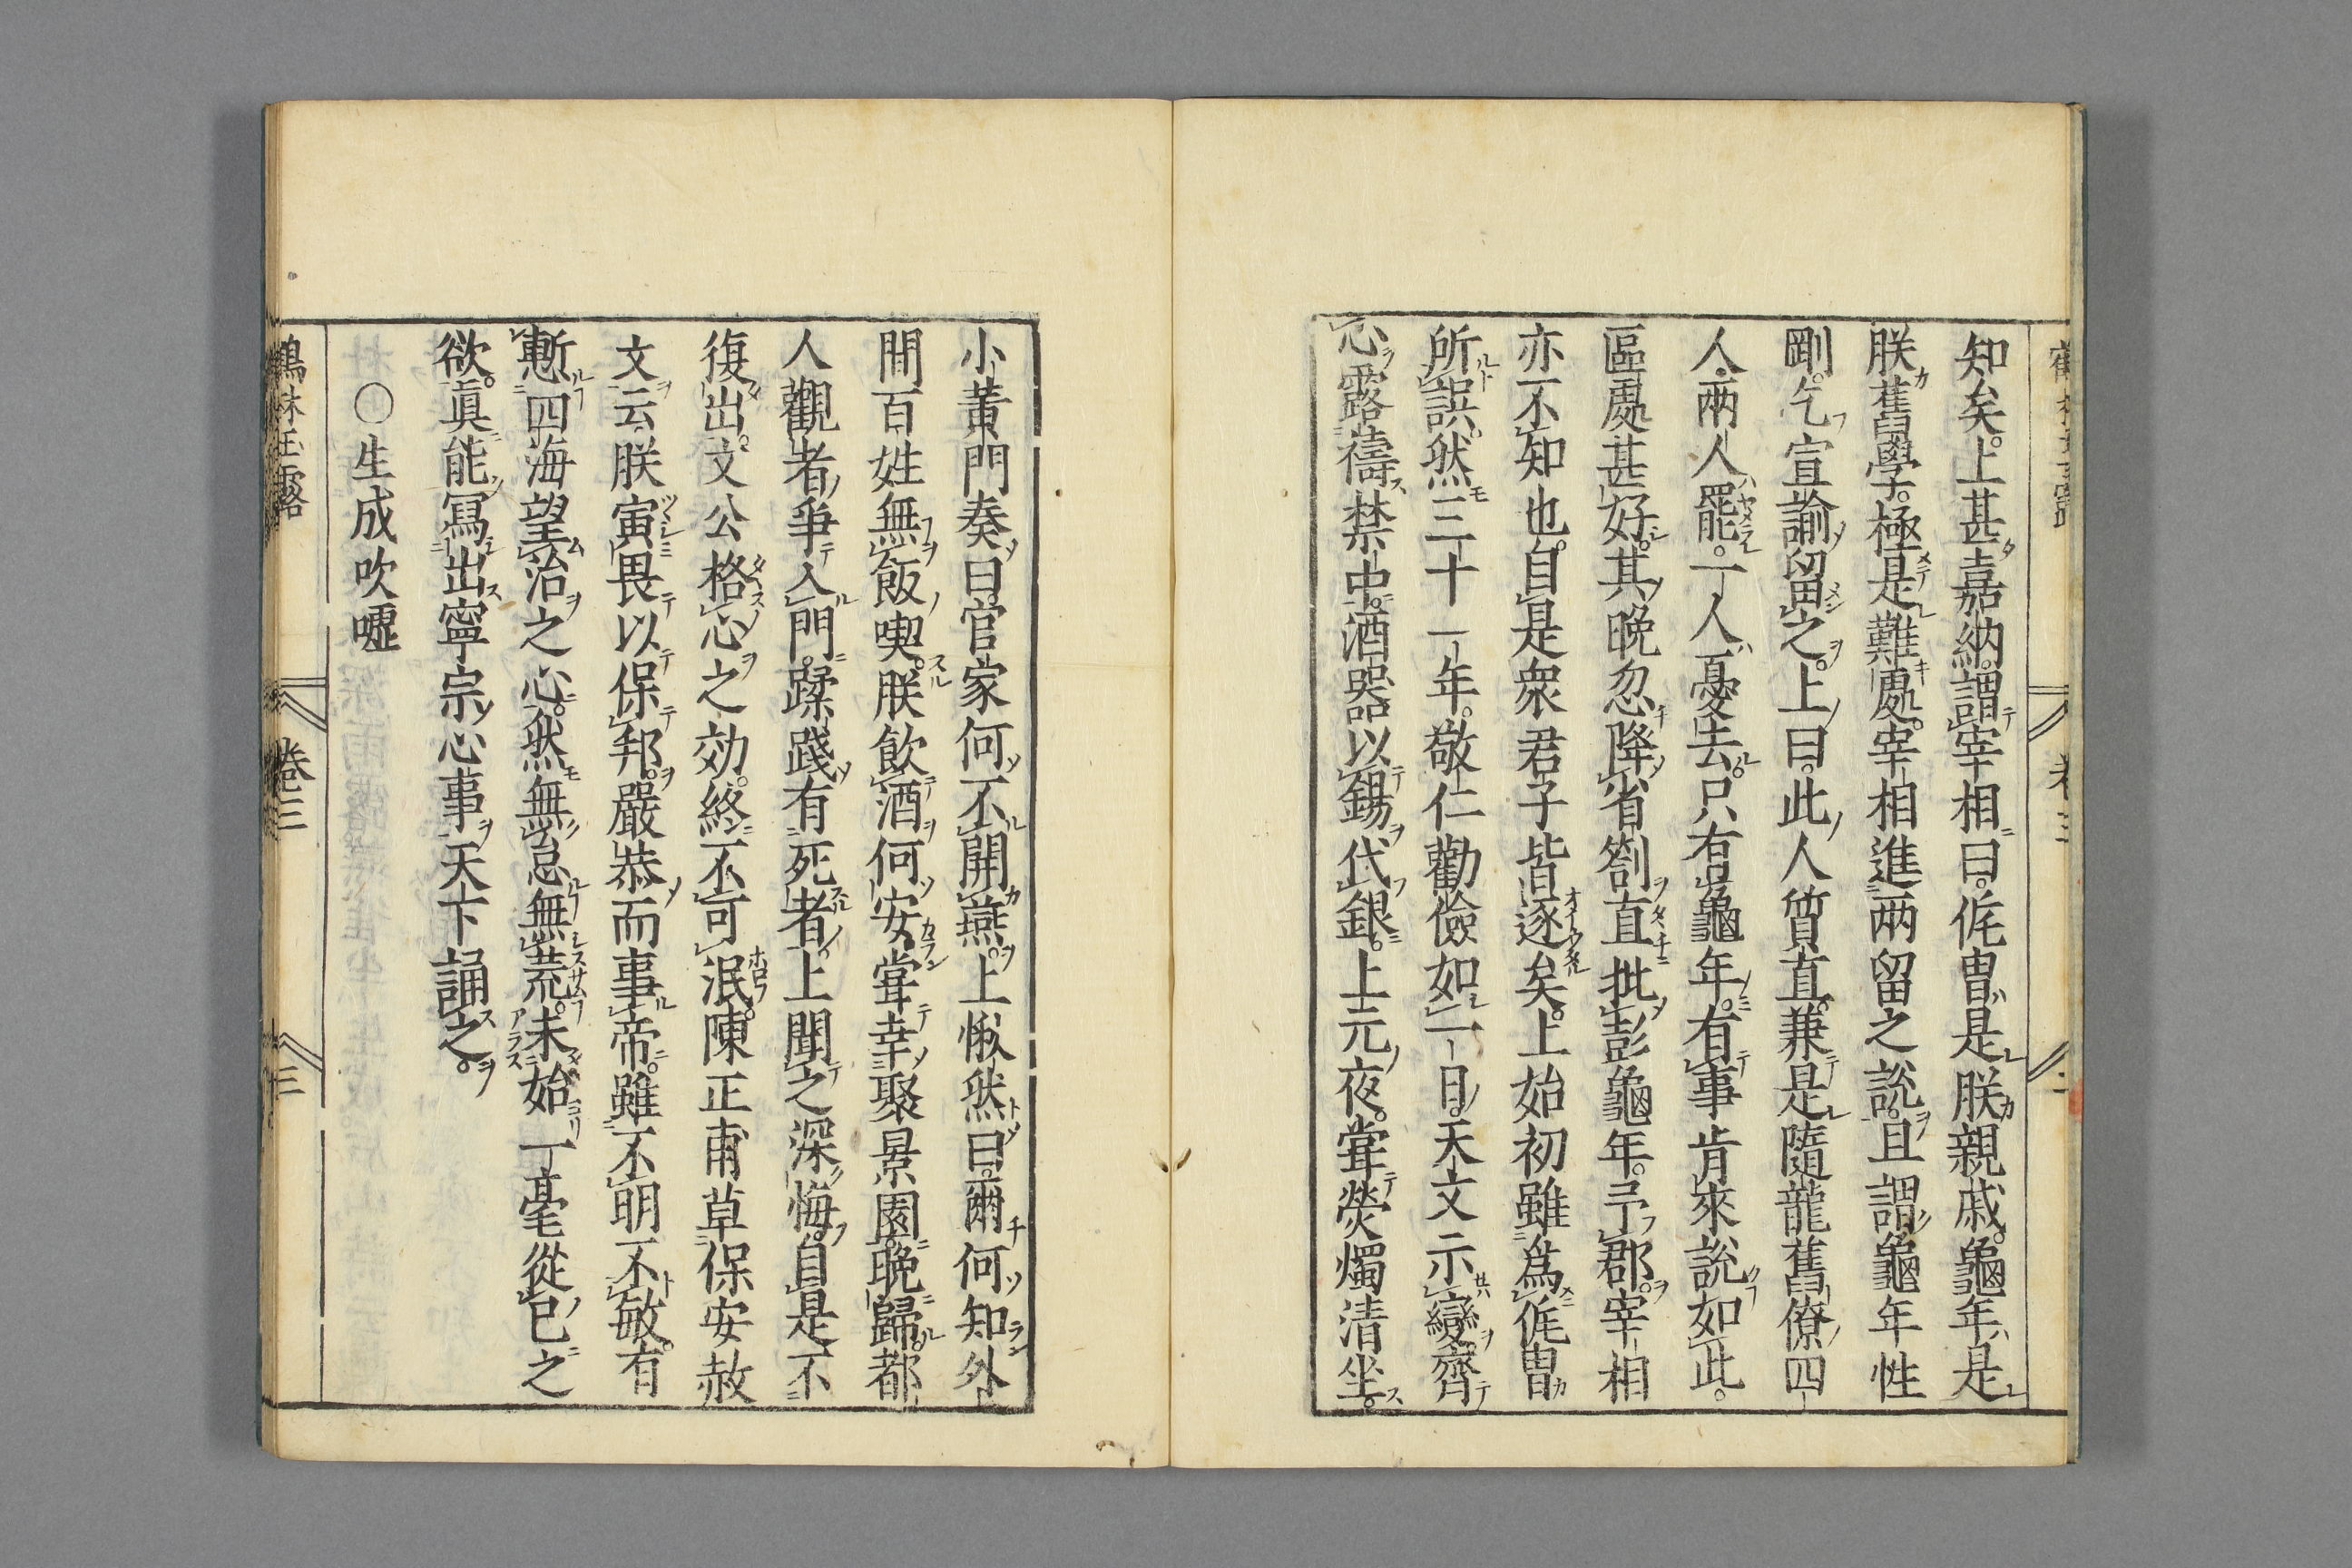 知矣。上甚嘉納。謂宰相曰。侂冑是朕親戚。龜年是
朕舊學。極是難處。宰相進兩留之說。且謂龜年性
剛。乞宣諭留之。上曰。此人質直。兼是隨龍舊僚四
人。兩人罷。一人憂去。只右龜年。有事肯來說如此。
區處甚好。其晩忽降省劄直批彭龜年。予郡。宰相
亦不知也。自是衆君子皆逐矣。上始初雖爲侂冑
所誤。然三十一年。敬仁勸儉如一日。天文示變。齊
心露禱禁中。酒器以錫代銀。上元夜。甞熒燭清坐。
小黄門奏曰。官家何不開燕。上愀然曰。爾何知外
間百姓無飯喫。朕飮酒何安。甞幸聚景園。晩歸。都
人觀者爭入門。蹂踐有死者。上聞之深悔。自是不
復出。文公格心之効。終不可泯。陳正甫草保安赦
文云。朕寅畏以保邦。嚴恭而事帝。雖不明不敏。有
慙四海望治之心。然無怠無荒。未始一毫從已之
欲。眞能寫出寧宗心事。天下誦之。
〇生成吹嘘
鶴林玉露
卷三
三